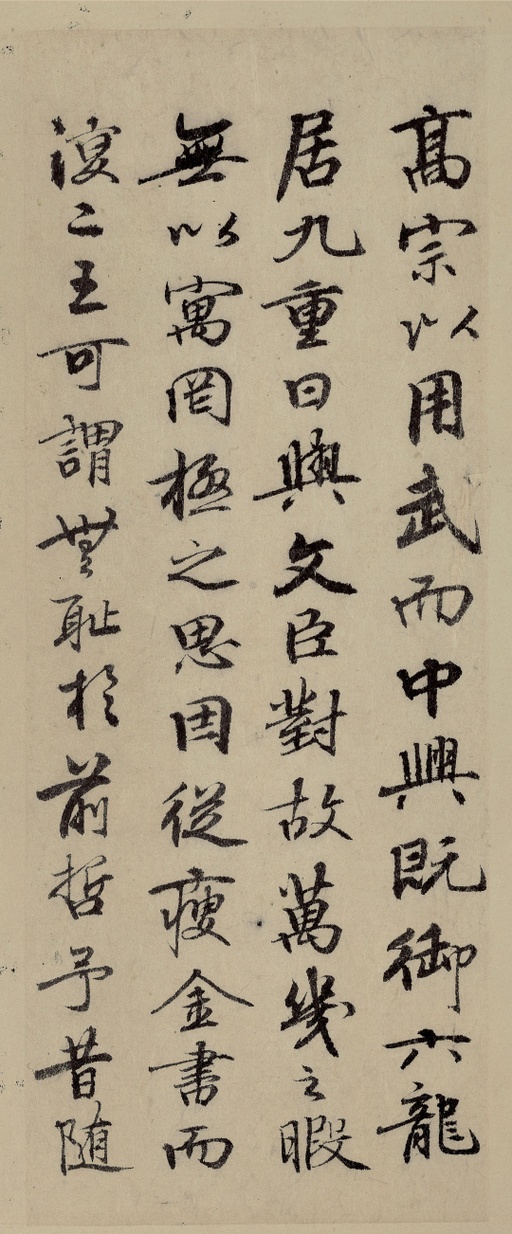 高宗以用武而中興既御六龍
居九重日與文臣對故萬幾之暇
無以寓罔極之思因從瘦金書而
復二王可謂無恥於前哲予昔隨